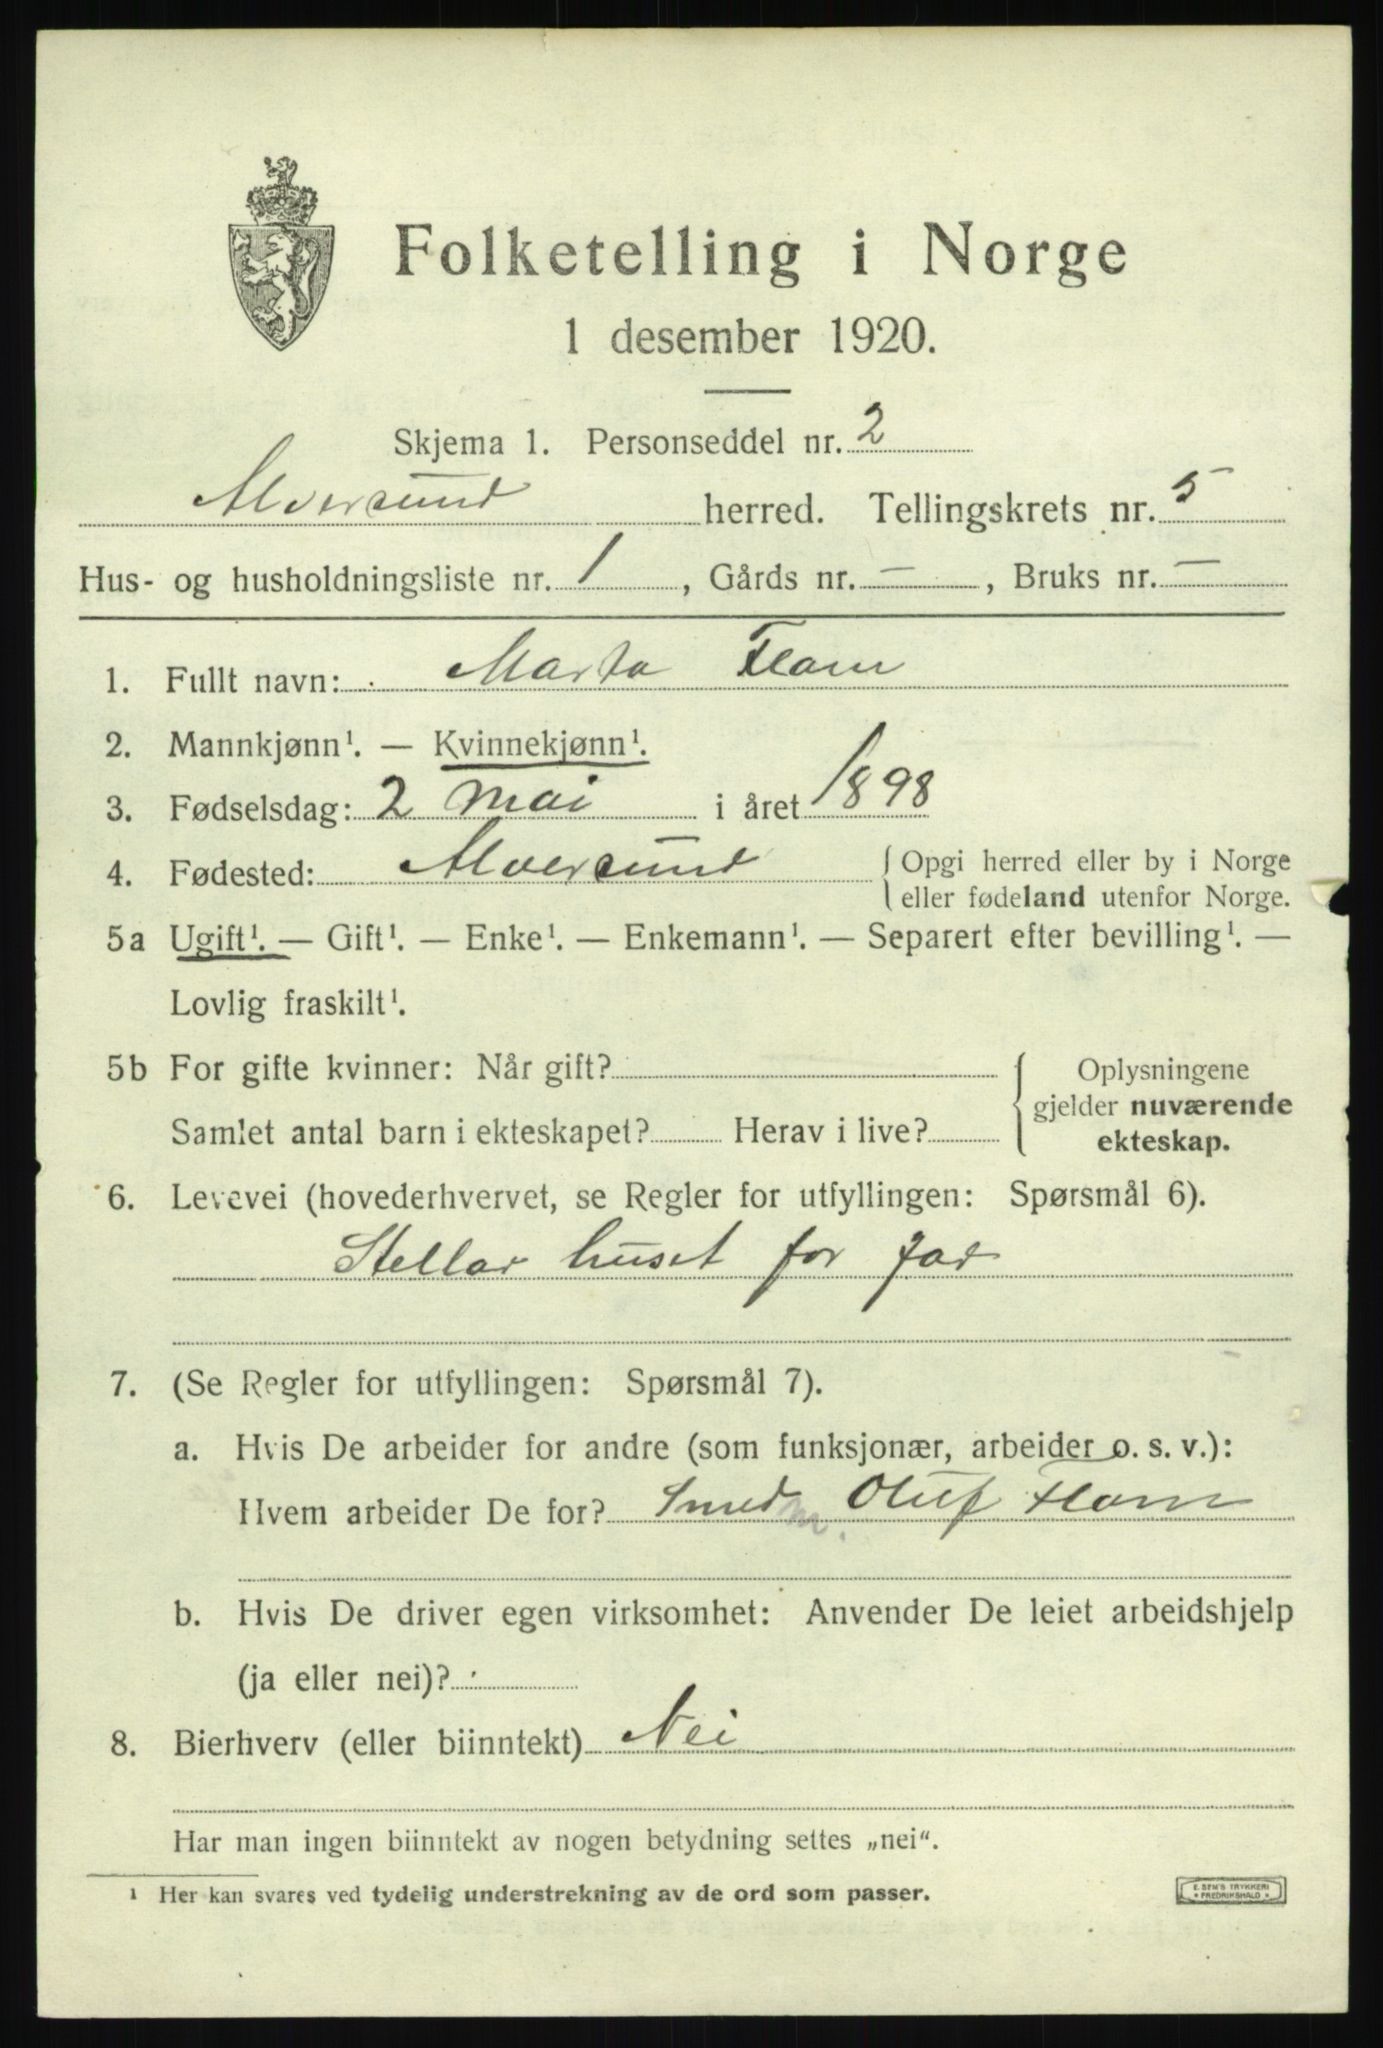 Folketelling i Norge
1 desember 1920.
Skjema 1. Personseddel nr. 2
Alversund herred. Tellingskrets nr. 5
Hus- og husholdningsliste nr. 1, Gårds nr. —, Bruks nr. —
1. Fullt navn: Marta Flam
2. Mannkjønn¹. — Kvinnekjønn¹.
3. Fødselsdag: 2 mai i året 1898
4. Fødested: Alversund { Opgi herred eller by i Norge
eller fødeland utenfor Norge.
5a Ugift¹. — Gift¹. — Enke¹. — Enkemann¹. — Separert efter bevilling¹. —
Lovlig fraskilt¹.
5b For gifte kvinner: Når gift? { Oplysningene
gjelder nuværende
Samlet antal barn i ekteskapet? Herav i live? ekteskap.
6. Levevei (hovederhvervet, se Regler for utfyllingen: Spørsmål 6).
Stellar huset for far
7. (Se Regler for utfyllingen: Spørsmål 7).
a. Hvis De arbeider for andre (som funksjonær, arbeider o. s. v.):
Hvem arbeider De for? Smed m. Oluf Flam
b. Hvis De driver egen virksomhet: Anvender De leiet arbeidshjelp
(ja eller nei)?
8. Bierhverv (eller biinntekt) Nei
Har man ingen biinntekt av nogen betydning settes „nei“.
¹ Her kan svares ved tydelig understrekning av de ord som passer.
E. SEM'S TRYKKERI
* FREDRIKSHALD *